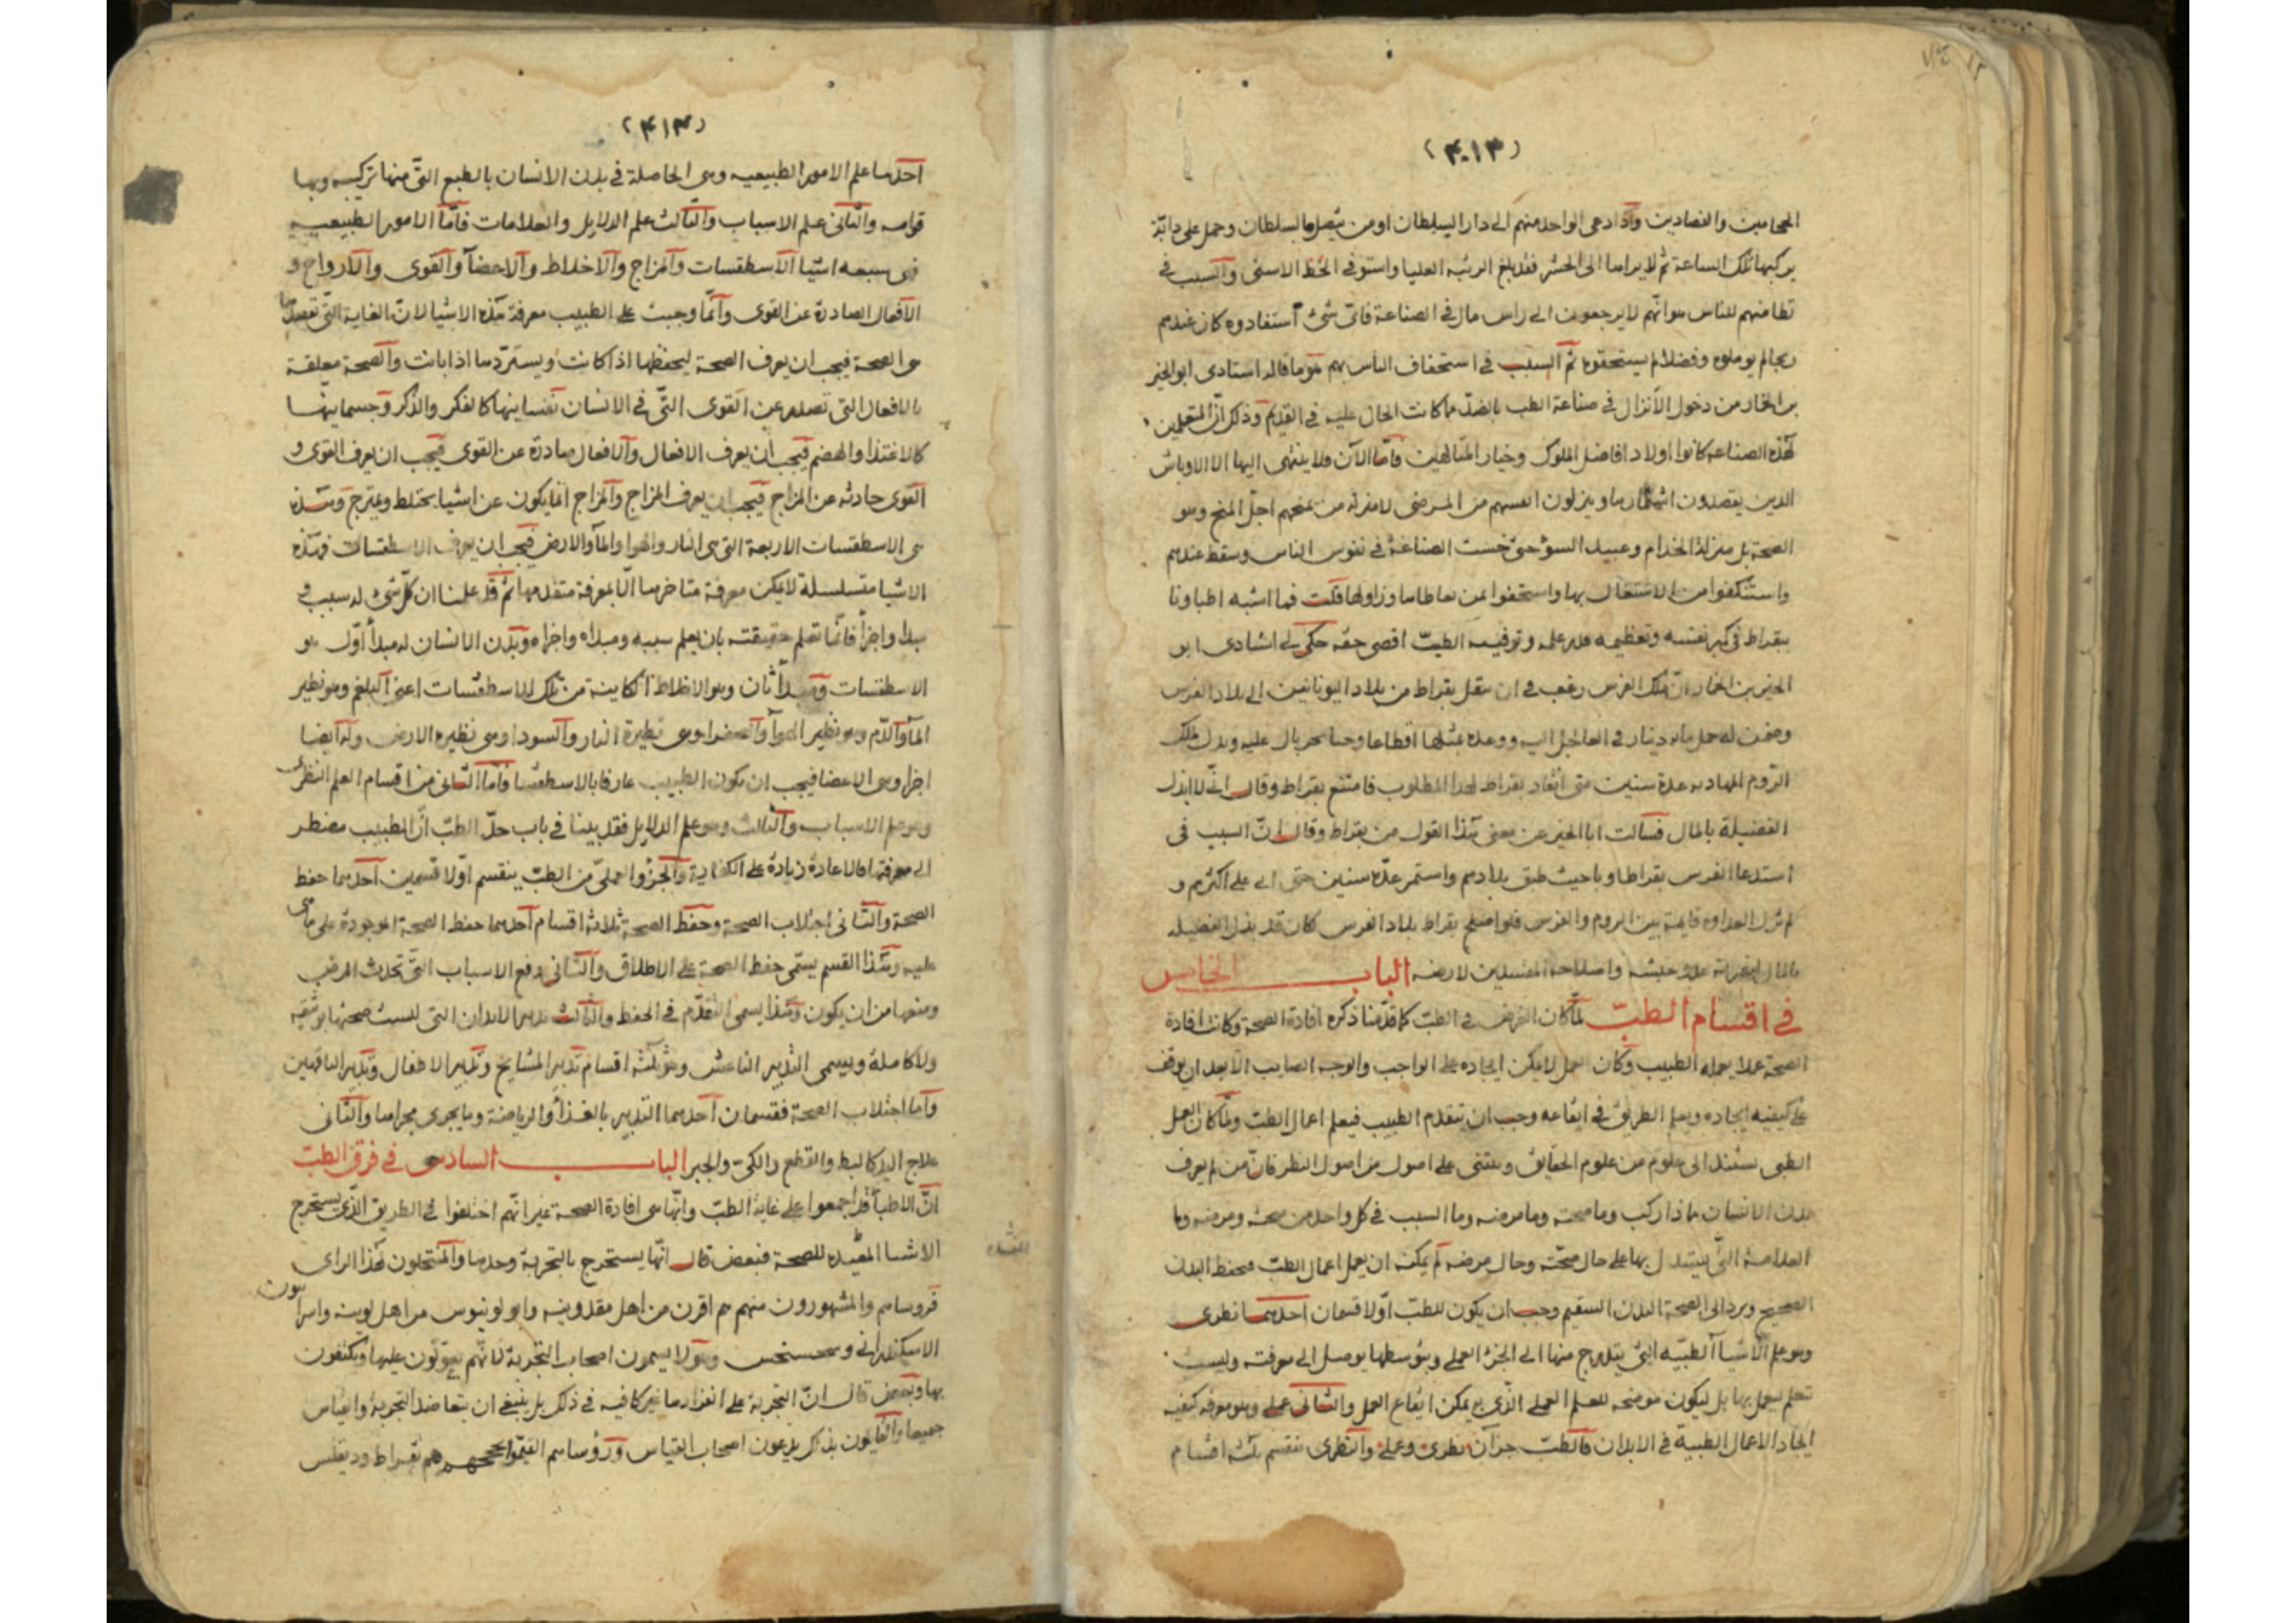 (۴۰۱۳)
الحجامين والفصادين واذا دعى الواحد منهم الى دار السلطان او من يتصل بالسلطان وحمل على دابّة
يركبها تلك الساعة ثم لا يراها الى الحشر فقد بلغ الرتبه العليا واستوفى الحظ الاسنى والسبب فى
تطامنهم للناس هو انّهم لا يرجعون الى راس مال فى الصناعة فاىّ شىء استفادوه كان عندهم
ربحا لم يوملوه وفضلا لم يستحقوه ثم السبب فى استخفاف الناس بهم هو ما قاله استادى ابو الخير
بن الخمار من دخول الأنزال فى صناعة الطب بالضدّ مما كانت الحال عليه فى القديم وذلك انّ المتعلمين
لهذه الصناعه كانوا اولاد افاضل الملوك وخيار المتالهين فامّا الآن فلا ينتهى اليها الا الاوباش
الذين يقصدون اشهارها وينزلون انفسهم من المرضى لا منزله من يمنحهم اجلّ المنح وهو
الصحة بل منزلة الخدام وعبيد السوء حتى خست الصناعة فى نفوس الناس وسقط عندهم
واستنكفوا من الاشتغال بها واستخفوا بمن تعاطاها وزاولها فكت فما اشبه اطباونا
ببقراط فى كبر نفسه وتعظيمه قدر علمه وتوفيه الطبّ اقصى حقه حكى لى استادى ابو
الخير بن الخمار انّ ملك الفرس رغب فى ان ينقل بقراط من بلاد اليونانيين الى بلاد الفرس
وضمن له حمل مائه دينار فى العاجل اليه ووعده بمثلها اقطاعا وبذل ملك
الرّوم المهادنه عدة سنين متى انفاد بقراط لهذا المطلوب فامتنع بقراط وقال انّى لا ابذل
الفضيلة بالمال فسالت ابا الخير عن معنى هذا القول من بقراط وقال انّ السبب فى
استدعا الفرس بقراط وبا حيث طبق بلادهم واستمر عدّة سنين حتى اتى على اكثرهم و
لم تزل العداوه قايمة بين الروم والفرس فلو اصلح بقراط بلاد الفرس كان قد بذل الفضيله
بالمال واصلاحه المفسدين لارضه الباب الخامس
فى اقسام الطبّ لمّا كان الغرض فى الطبّ كما قدّمنا ذكره افادة الصحة وكانت افادة
الصحة عملا يعمله الطبيب وكان العمل لا يمكن ايجاده على الواجب والوجه الصايب الّا بعد ان يوقف
على كيفيه ايجاده ويعلم الطريق فى ايقاعه وجب ان يتقدم الطبيب فيعلم اعمال الطبّ ولمّا كان العمل
الطبى يستند الى علوم من علوم الحقايق ويبتنى على اصول من اصول النظر فانّ من لم يعرف
بدن الانسان مماذا ركب وما صحته وما مرضه وما السبب فى كل واحد من صحته ومرضه وما
العلامة التّى يستدل بها على حال صحّته وحال مرضه لم يمكنه ان يعمل اعمال الطبّ فيحفظ البدن
الصحيح ويرد الى الصحة البدن السقيم وجب ان يكون للطبّ اوّلا قسمان احدهما نظرى
وهو علم الاشياء الطبّيه التى يتدرج منها الى الجزء العملى وبتوسطها يوصل الى معرفته وليست
تعلم ليعمل بها بل ليكون موضحه للعلم العملى الّذى به يمكن ايقاع العمل والثانى عملى وهو معرفه كيفيه
ايجاد الاعمال الطبيّة فى الابدان فالطبّ جزآن نظرى وعملى والنظرى ينقسم ثلثه اقسام
(۴۱۳)
احدها علم الامور الطبيعيه وهى الحاصلة فى بدن الانسان بالطبع التّى منها تركيبه وبها
قوامه والثّانى علم الاسباب والثّالث علم الدلايل والعلامات فامّا الامور الطبيعيه
فهى سبعه اشيا الاسطقسات والمزاج والاخلاط والاعضآ والقوى والارواح و
الافعال الصادرة عن القوى وانّما وجبت على الطبيب معرفة هذه الاشيا لانّ الغاية التّى يقصدها
هى الصحة فيجب ان يعرف الصحة ليحفظها اذا كانت ويستردّها اذا بانت والصحة معلقة
بالافعال التى تصدر عن القوى التّى فى الانسان نفسانيها كالفكر والذكر وجسمانيّها
كالاغتذا والهضم فيجب ان يعرف الافعال والافعال صادرة عن القوى فيجب ان يعرف القوى و
القوى حادثه عن المزاج فيجب ان يعرف المزاج والمزاج انّما يكون عن اشيا يختلط ويمتزج وهذه
هى الاسطقسات الاربعة التى هى النار والهوا والمآ والارض فيجب ان يعرف الاسطقسات فهذه
الاشيا متسلسلة لا يمكن معرفة متاخرها الّا بمعرفة متقدمها ثمّ قد علمنا ان كلّ شىء له سبب و
مبدا واجزأ فانّما تعلم حقيقته بان يعلم سببه ومبداه واجزاه وبدن الانسان له مبدأ اوّل هو
الاسطقسات ومبدأ ثان وهو الاخلاط الكاينة من تلك الاسطقسات اعنى البلغم وهو نظير
المآ والدّم وهو نظير الهوآ والصفرا وهى نظيرة النار والسودا وهى نظيره الارض وله ايضا
اجزا وهى الاعضا فيجب ان يكون الطبيب عارفا بالاسطقسا فامّا الثّانى من اقسام العلم النظرى
وهو علم الاسباب والثالث وهو علم الدلايل فقد بينا فى باب حدّ الطبّ انّ الطبيب مضطر
الى معرفتها فالاعادة زيادة على الكفاية والجزؤ العملىّ من الطبّ ينقسم اوّلا قسمين احدهما حفظ
الصحة والثّانى اجتلاب الصحة وحفظ الصحة ثلاثة اقسام احدهما حفظ الصحة الموجودة على ما هى
عليه وهذا القسم يسمّى حفظ الصحة على الاطلاق والثّانى دفع الاسباب التّى تحدث المرض
ومنعها من ان يكون وهذا يسمى التّقدّم فى الحفظ والثّالث تدبير الابدان التى ليست صحتها بوثيقه
ولا كاملة ويسمى التدبير الناعش وهو ثلثه اقسام تدبير المشايخ وتدبير الاطفال وتدبير الناقهين
وامّا اجتلاب الصحة فقسمان احدهما التدبير بالغذأ والرياضة وما يجرى مجراها والثّانى
علاج اليد كالبط والقطع والكىّ والجبر الباب السادس فى فرق الطبّ
انّ الاطبآ قد اجمعوا على غاية الطبّ وانّها هى افادة الصحة غير انّهم اختلفوا فى الطريق الّذى يستخرج
الاشيا المفيده للصحة فبعض قال انّها يستخرج بالتجربة وحدها والمنتحلون لهذا الراى
فروساهم والمشهورون منهم هم اقرن من اهل مقدونيه وابولونيوس من اهل
الاسكندرانى وهولا يسمون اصحاب التجربة لانّهم يعوّلون عليها ويكتفون
بها وبعض قال انّ التجربة على انفرادها غير كافيه فى ذلك بل ينبغى ان يتعاضد التجربة والقياس
جميعا والقايلون بذلك يدعون اصحاب القياس ورؤساهم هم بقراط وديقلس